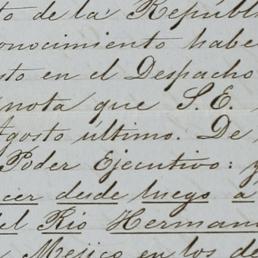 to de la Repúbli
onocimiento habe
sto en el Despacho
nota que S.E.
Agosto último. De
Poder Ejecutivo: y
cer desde luego á
del Rio Herman
Mejico en los de